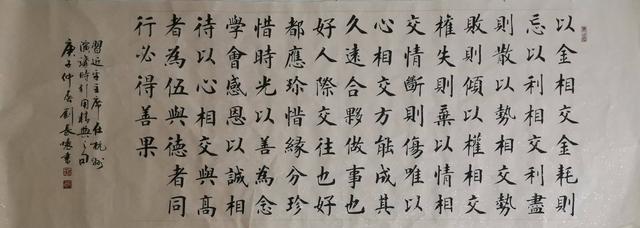 以金相交金耗則
忘以利相交利盡
則散以勢相交勢
敗則傾以權相交
權失則棄以情相
交情斷則傷唯以
心相交方能成其
久遠合夥做事也
好人際交往也好
都應珍惜緣分珍
惜時光以善為念
學會感恩以誠相
待以心相交與高
者為伍與德者同
行必得善果
習近平主席在杭州
演講時引用精典之句
庚子仲春劉長書